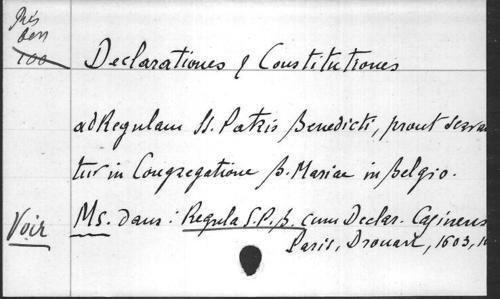 Rés
Ben
100
Declarationes & Constitutiones
ad Regulam SS. Patris Benedicti, prout serva
tur in Congregatione B. Mariae in Belgio.
Voir
Ms. dans : Regula S.P.B. cum Declar. Casinens
Paris, Drouart, 1603,